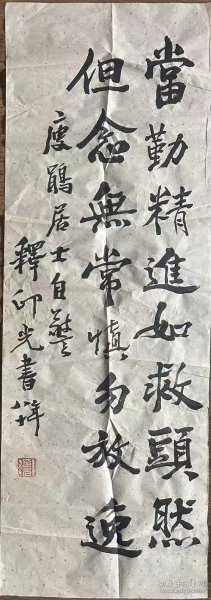 當勤精進如救頭然
但念無常慎勿放逸
居士自警
釋印光書